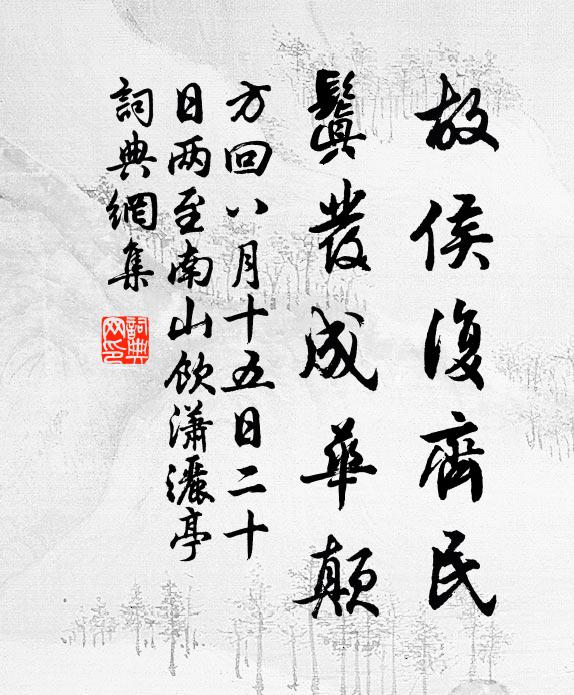 故侯復齊民
鬒发成華顛
方回八月十五日二十
日两至南山飲瀟灑亭
詞典網集
詞典網印